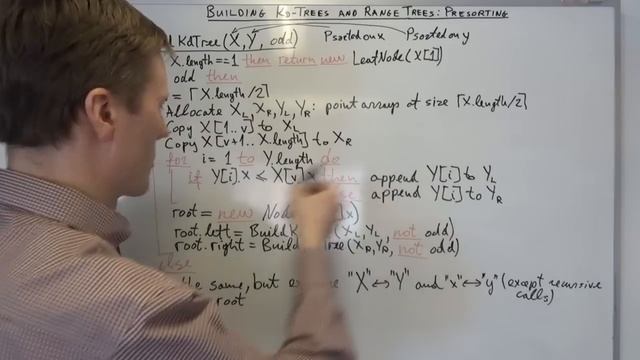 BUILDING KD-TREES AND RANGE TREES: PRESORTING
KdTree(X,Y, odd) P sorted on x P sorted on y
X.length==1 then return new LeafNode(X[1])
odd then
= ⌈X.length/2⌉
Allocate X_L, X_R, Y_L, Y_R: point arrays of size ⌈X.length/2⌉
Copy X[1..v] to X_L
Copy X[v+1..X.length] to X_R
for i = 1 to Y.length do
if Y[i].x ≤ X[v].x then append Y[i] to Y_L
append Y[i] to Y_R
root = new Node x)
root.left = BuildK (X_L,Y_L, not odd)
root.right = Build Tree (X_R,Y_R, not odd)
else
the same, but "X"↔"Y" and "x"↔"y" (except recursive
root calls)